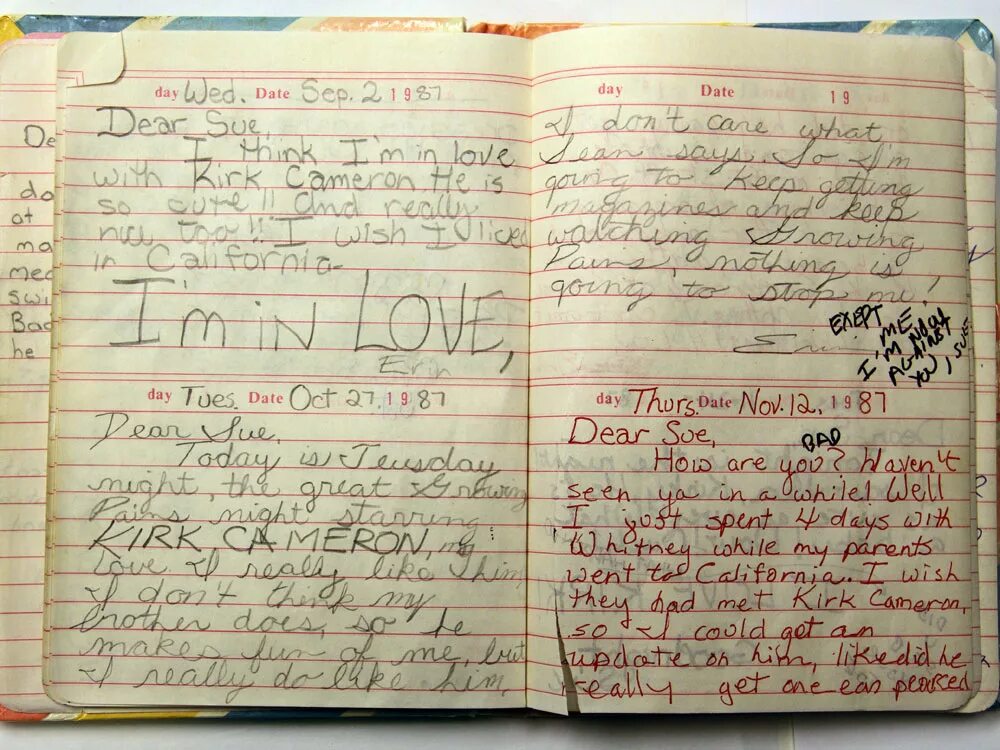 day Wed. Date Sep. 2 1987
Dear Sue,
I think I'm in love
with Kirk Cameron. He is
so cute!! And really
nice too!! I wish I lived
in California.
I'm in LOVE,
Erin
day Tues. Date Oct 27, 1987
Dear Sue,
Today is Teusday
night, the great Growing
Pains night starring
KIRK CAMERON, my
love. I really like him
I don't think my
brother does, so he
makes fun of me, but
I really do like him.
De
do
at
ma
med
swi
Bad
he
day Date 19
I don't care what
Sean says. So I'm
going to keep getting
magazines and keep
watching Growing
Pains, nothing is
going to stop me!
Erin
EXEPT
ME
I'M NOT
AGAINST
YOU, SUE
day Thurs. Date Nov. 12, 1987
Dear Sue,
BAD
How are you? Haven't
seen ya in a while! Well
I just spent 4 days with
Whitney while my parents
went to California. I wish
they had met Kirk Cameron,
so I could get an
update on him, like did he
really get one ear pearced